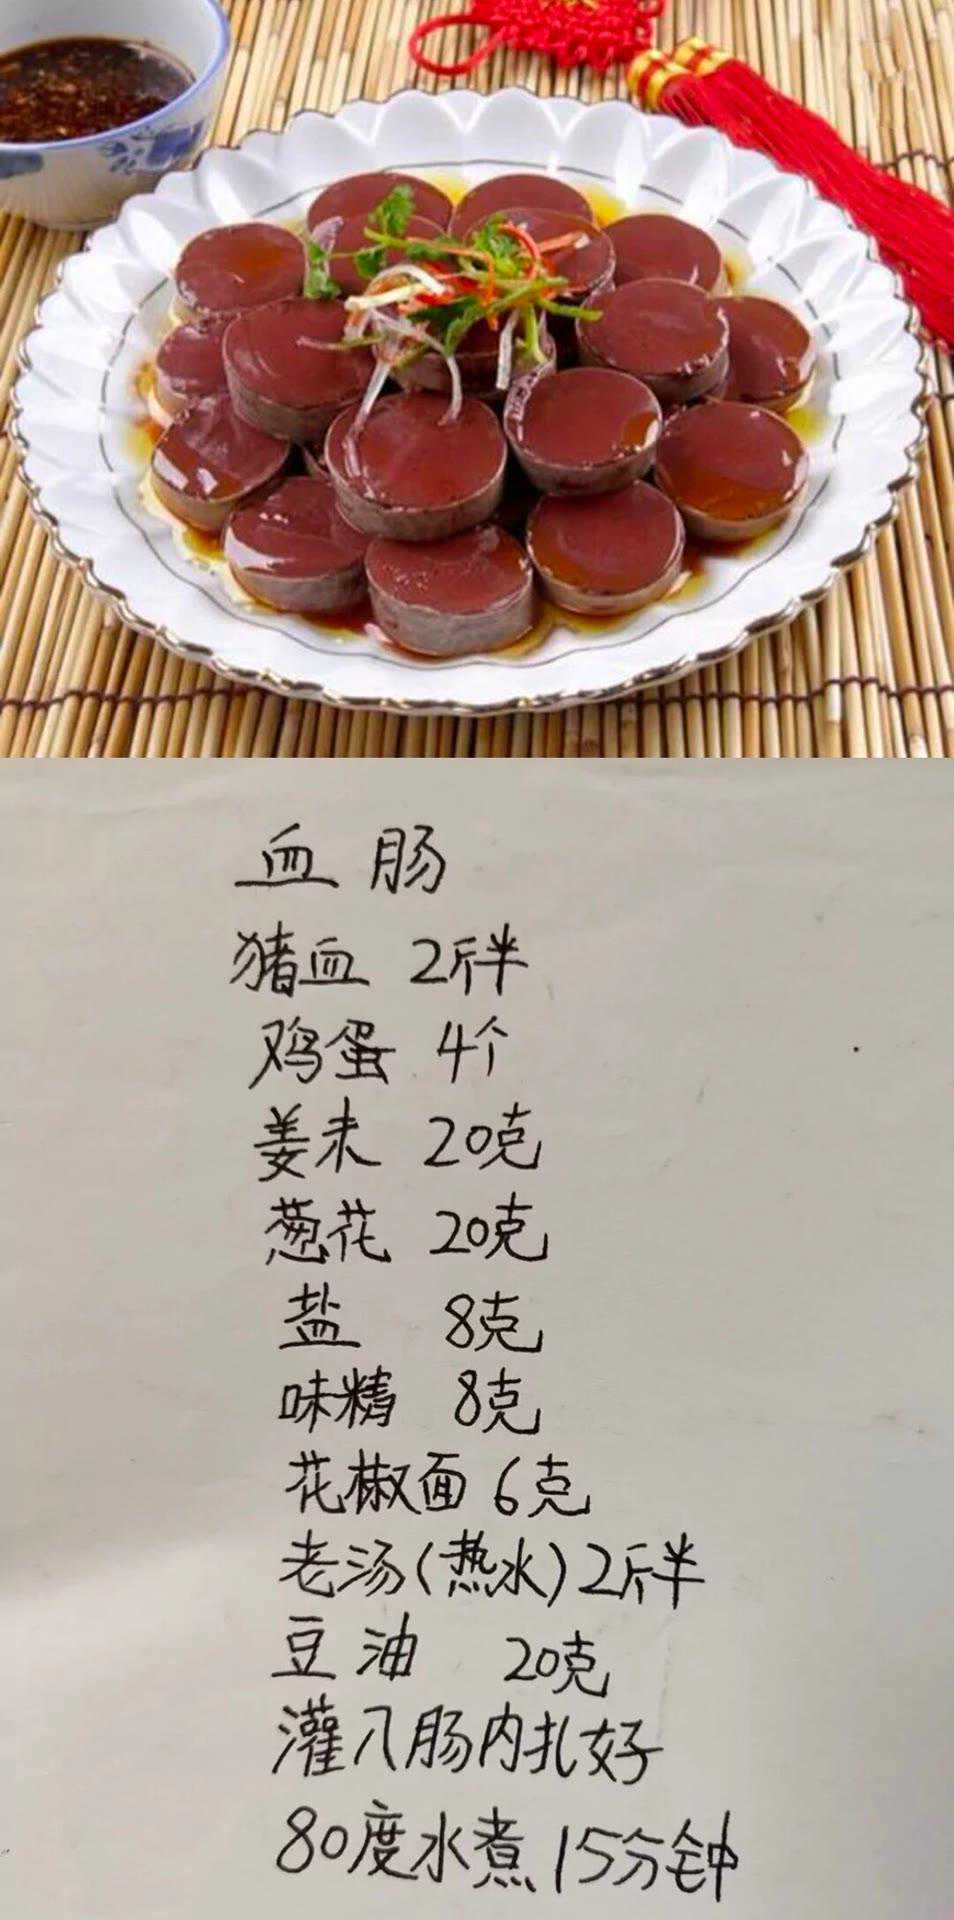 血肠
猪血 2斤半
鸡蛋 4个
姜末 20克
葱花 20克
盐 8克
味精 8克
花椒面 6克
老汤(热水)2斤半
豆油 20克
灌入肠内扎好
80度水煮15分钟